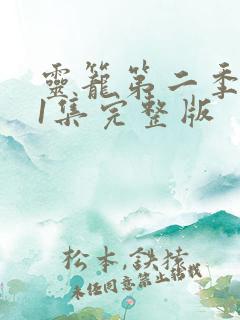 靈籠第二季
1集完整版
松本,鉄猿
未经同意禁止转载